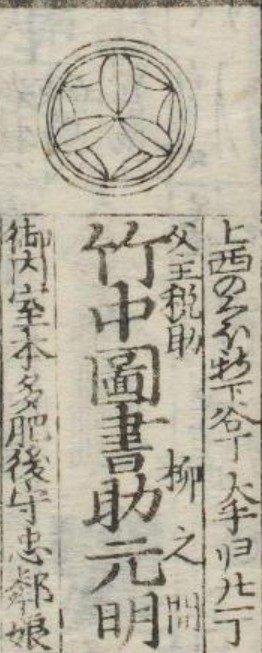 上西のくぼ
下谷丁大手归北一丁
父主税助 柳之間
竹中圖書助元明
御内室本多肥後守忠鄰娘